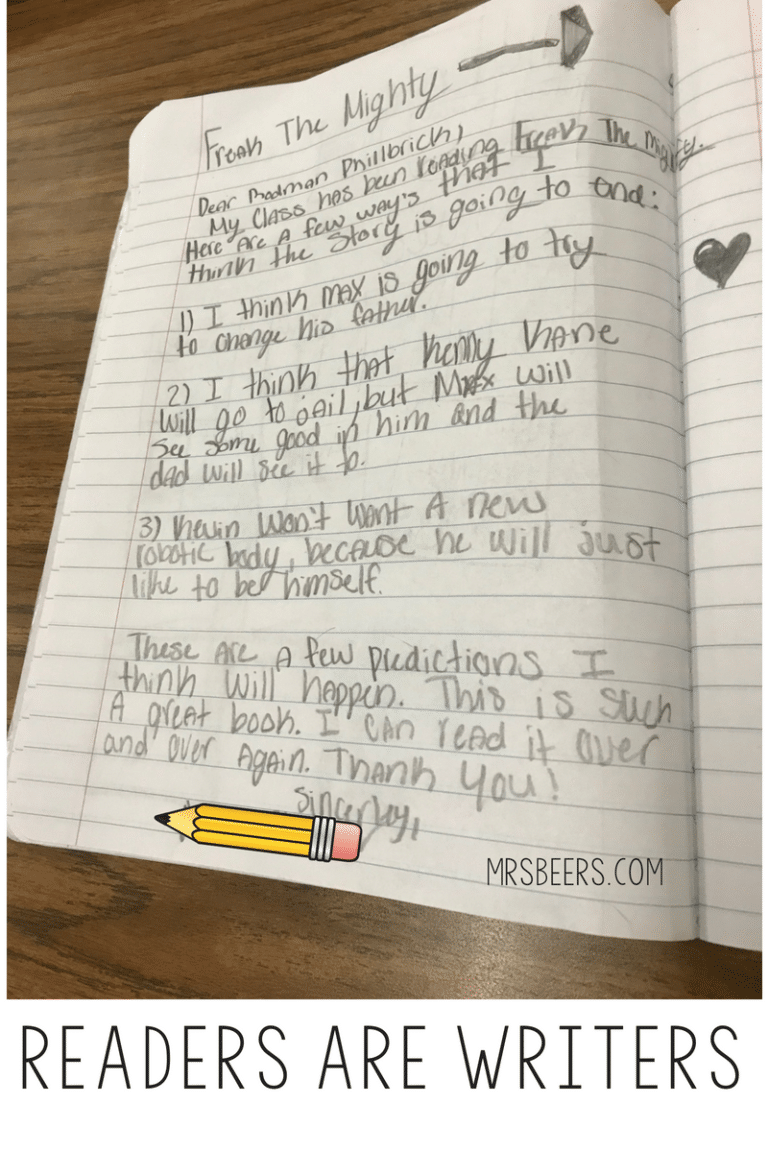 Freak The Mighty
Dear Rodman Phillbrick,
My Class has been reading Freak The Mighty.
Here Are A few way's that I
think the Story is going to end:
1) I think Max is going to try
to change his father.
2) I think that kenny kane
will go to jail, but Max will
see some good in him and the
dad will see it to.
3) Kevin Won't Want A new
robotic body, because he will just
like to be himself.
These Are A few predictions I
think will happen. This is such
A great book. I can read it over
and over Again. Thank you!
Sincerley,
MRSBEERS.COM
READERS ARE WRITERS